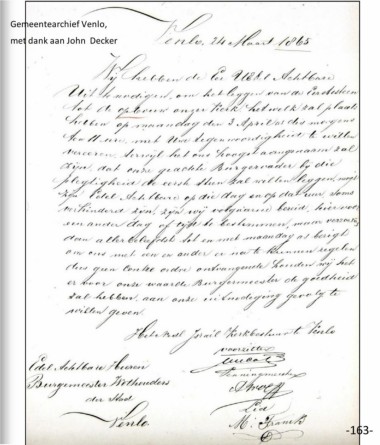 Gemeentearchief Venlo,
met dank aan John Decker
Venlo, 24 Maart 1865
Wij hebben de Eer UEdel Achtbare
Uit te noodigen, om het leggen van de Eersten steen
tot de opbouw onzer Kerk, hetwelk zal plaats
hebben op maandag den 3 April as des morgens
ten 11 ure, met Uwe tegenwoordigheid te willen
vereeren, terwijl het ons hoogst aangenaam zal
zijn, dat onze geachte Burgervader bij die
plegtigheid de eerste Steen zal willen leggen, mogt
zijn Edel Achtbare op die dag en op dat uur soms
verhinderd zijn, zijn wij volgaarne bereid, hiervoor
een ander dag of tijd te bestemmen, maar verzoeken
dan alles beleefdst tot en met maandag as berigt
om ons met een en ander er na te kunnen regelen
dus geen contra ordre ontvangende houden wij het
er voor onze waarde Burgemeester de goedheid
zal hebben, aan onze uitnodiging gevolg te
willen geven.
Het Israel Kerkbestuur te Venlo
voorzitter
Edel Achtbare Heeren
Burgemeester Wethouders
der Stad
Venlo
Penningmeester
Lid
M. Franck
-163-